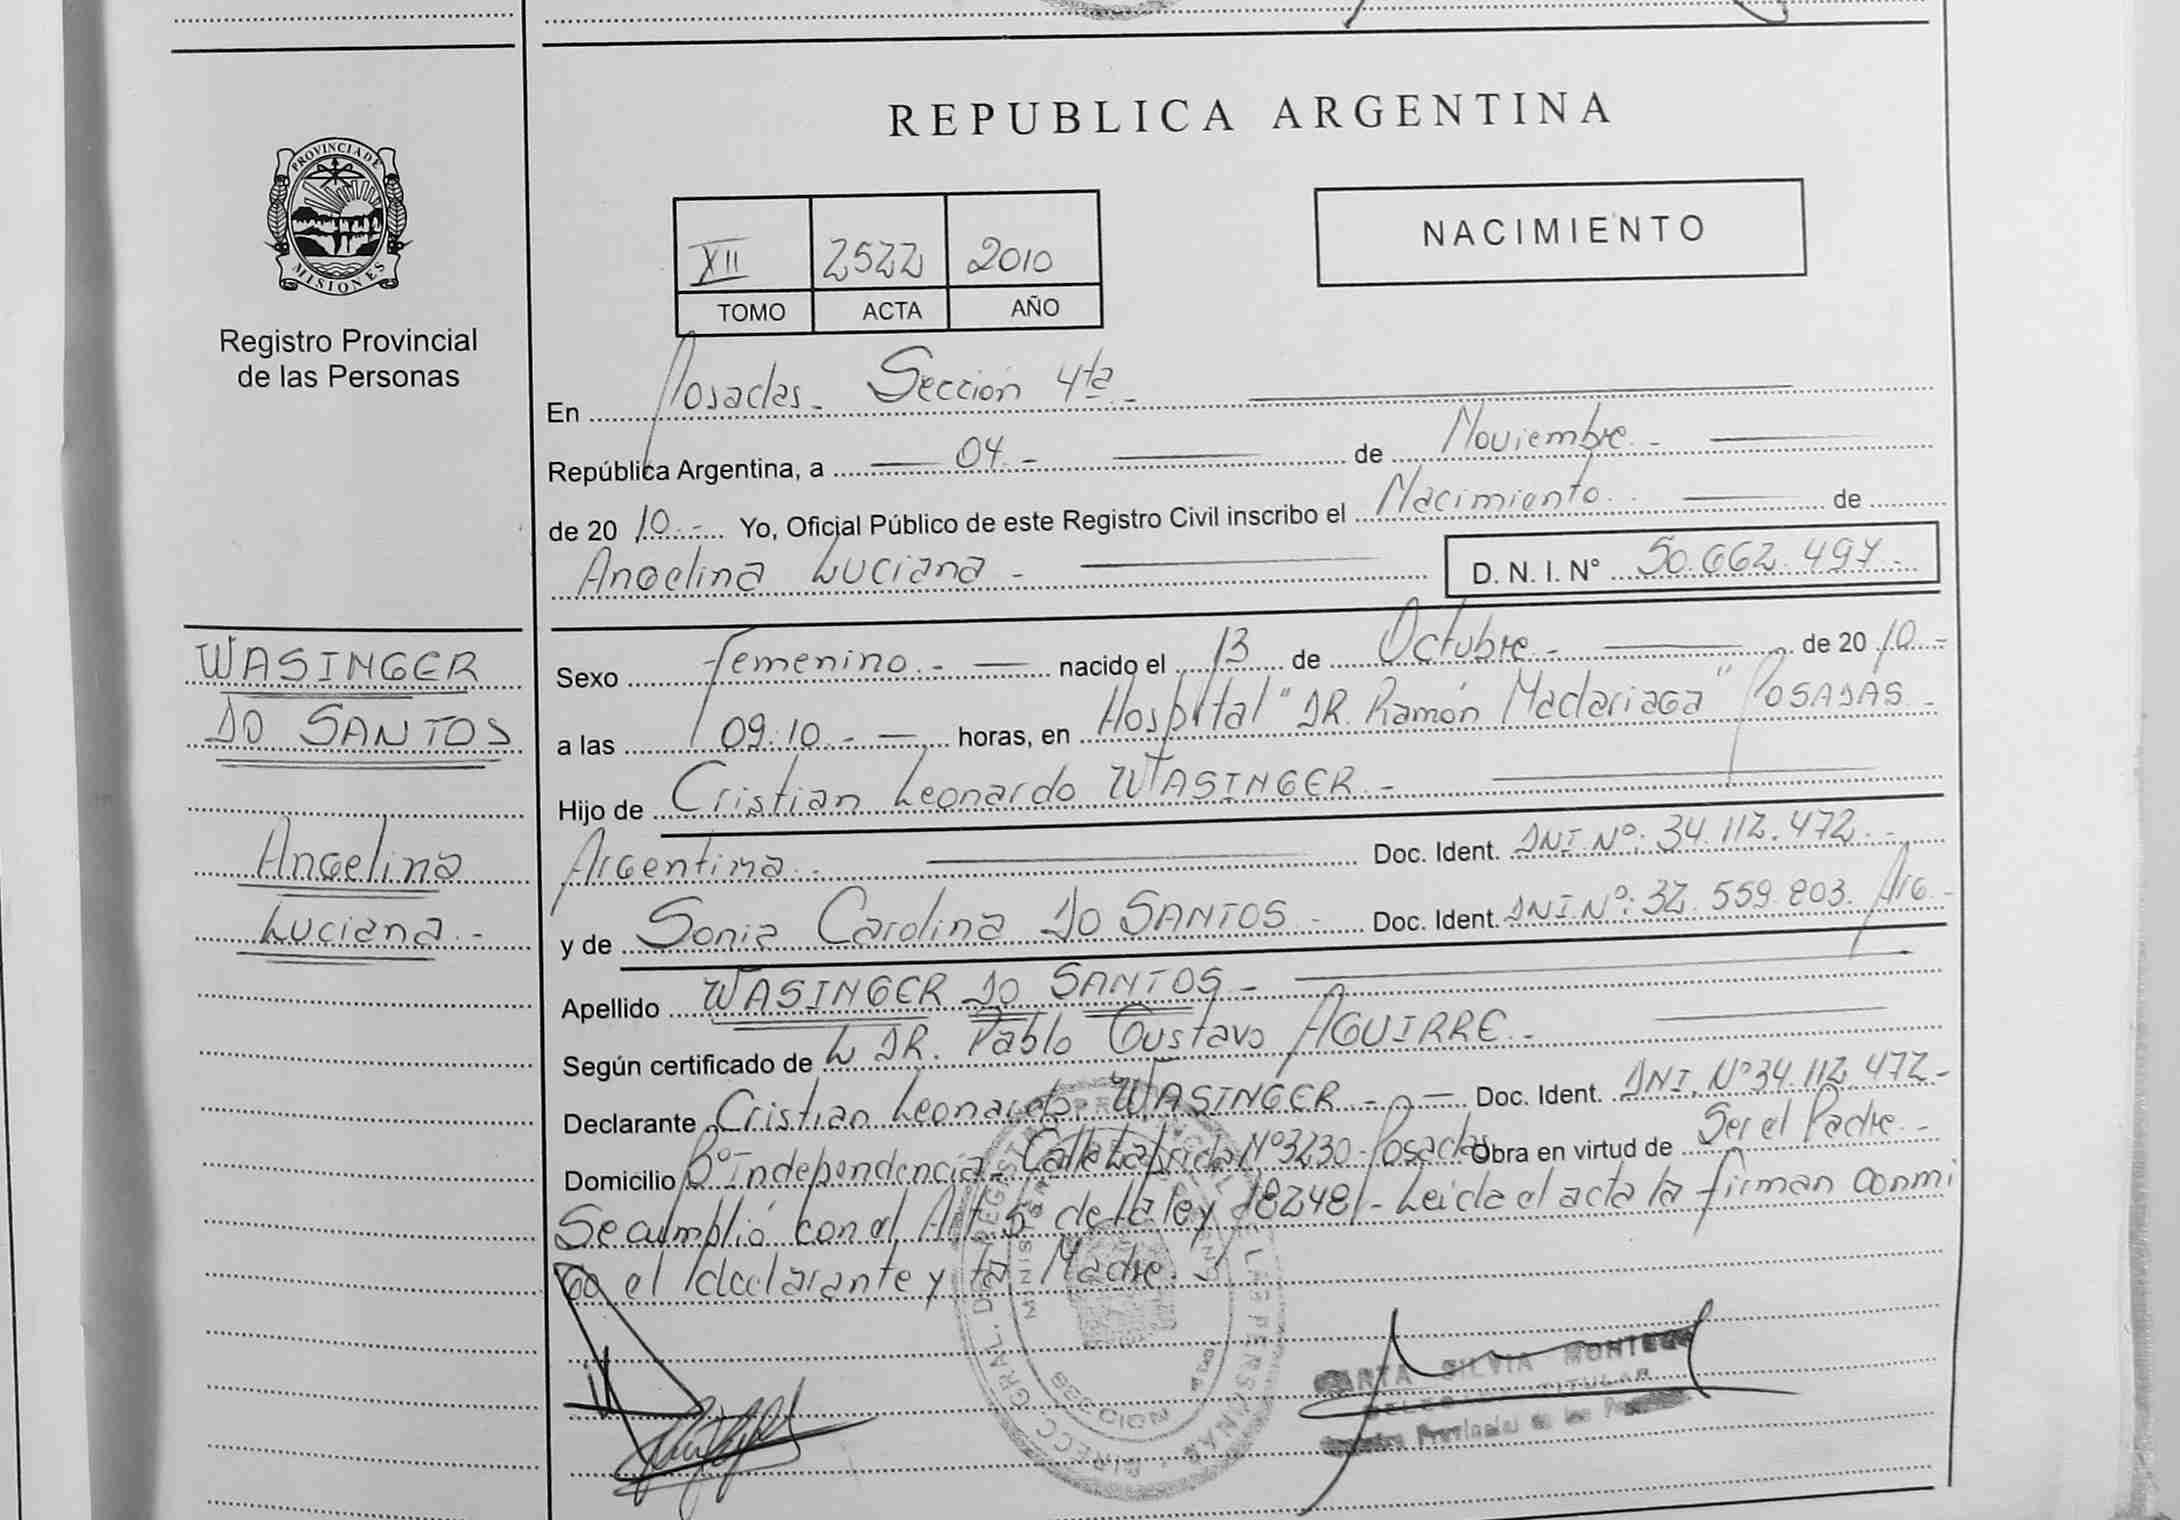 REPUBLICA ARGENTINA
PROVINCIA DE
MISIONES
Registro Provincial
de las Personas
NACIMIENTO
XII 2522 2010
TOMO ACTA AÑO
En Posadas - Sección 4ta -
República Argentina, a 04 - de Noviembre -
de 20 10 - Yo, Oficial Público de este Registro Civil inscribo el Nacimiento de
Angelina Luciana - D. N. I. Nº 50.662.497 -
WASINGER
DO SANTOS
Angelina
Luciana -
Sexo Femenino - nacido el 13 de Octubre - de 20 10 -
a las 09:10 - horas, en Hospital "DR. Ramón Madariaga" POSADAS -
Hijo de Cristian Leonardo WASINGER -
Argentina - Doc. Ident. DNI Nº: 34.112.472 -
y de Sonia Carolina DO SANTOS - Doc. Ident. DNI Nº: 32.559.803. Arg -
Apellido WASINGER DO SANTOS -
Según certificado de DR. Pablo Gustavo AGUIRRE -
Declarante Cristian Leonardo WASINGER - Doc. Ident. DNI Nº 34.112.472 -
Domicilio Bº Independencia - Calle Laprida Nº 3230 - Posadas Obra en virtud de Ser el Padre -
Se cumplió con el Art 5º de la ley 18248 - Leida el acta la firman conmi
go el declarante y la Madre
SILVIA
TITULAR